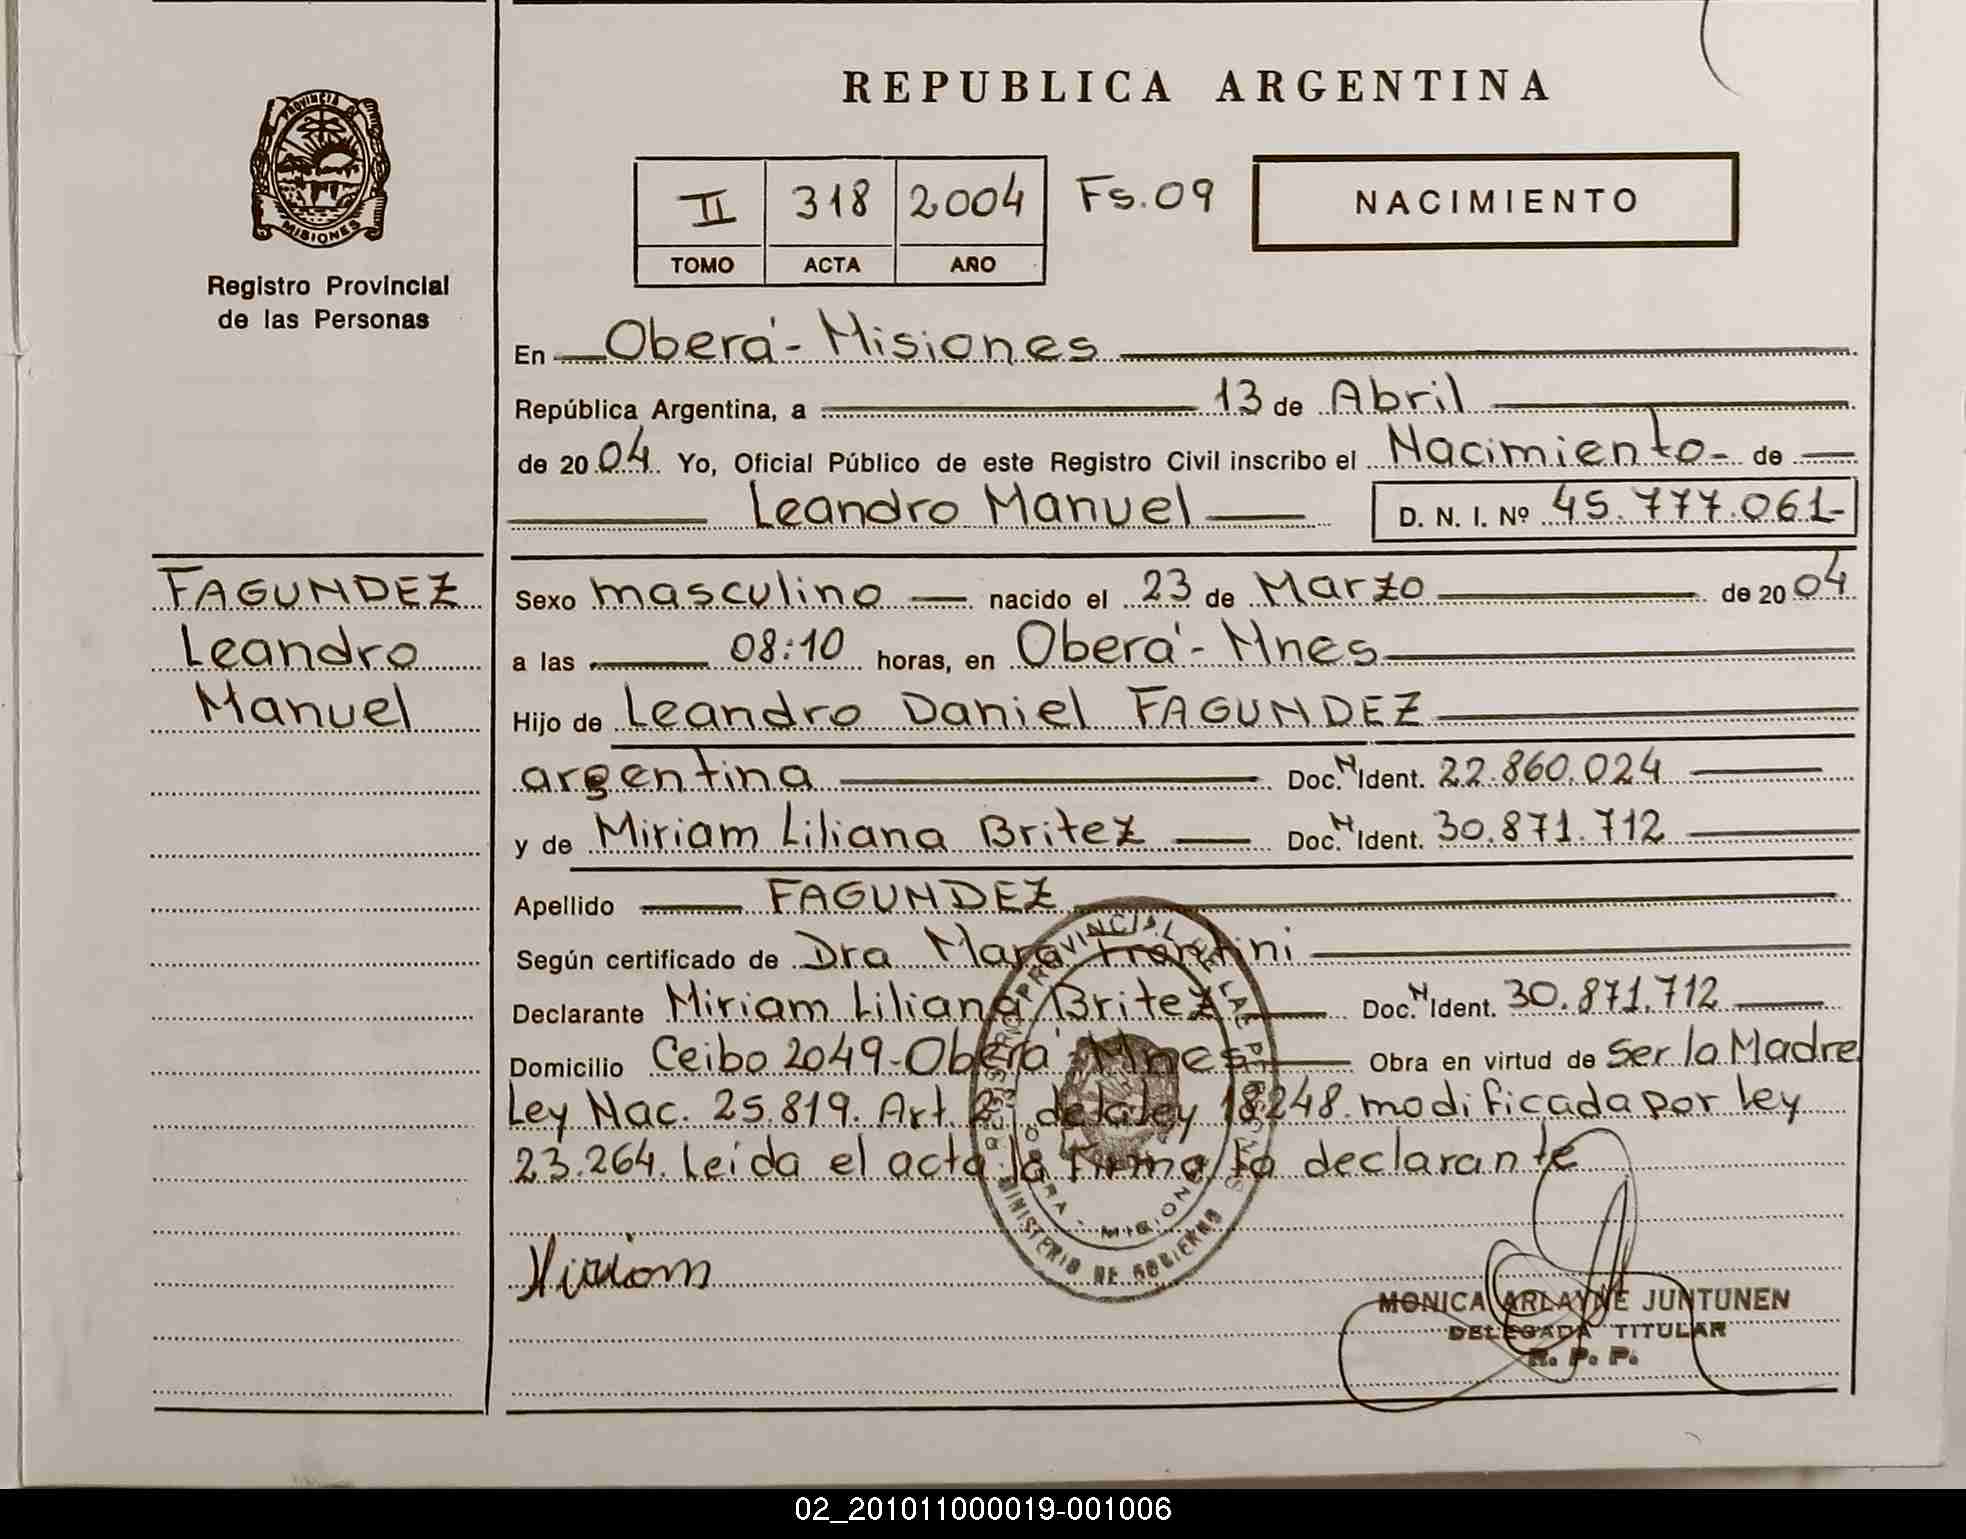 REPUBLICA ARGENTINA
PROVINCIA DE
MISIONES
Registro Provincial
de las Personas
II 318 2004 Fs.09
TOMO ACTA AÑO
NACIMIENTO
En Oberá - Misiones
República Argentina, a 13 de Abril
de 2004. Yo, Oficial Público de este Registro Civil inscribo el Nacimiento - de
Leandro Manuel D. N. I. Nº 45.777.061-
FAGUNDEZ
Leandro
Manuel
Sexo masculino nacido el 23 de Marzo de 2004
a las 08:10 horas, en Oberá - Mnes
Hijo de Leandro Daniel FAGUNDEZ
argentina Doc. N Ident. 22.860.024
y de Miriam Liliana Britez Doc. N Ident. 30.871.712
Apellido FAGUNDEZ
Según certificado de Dra Mara
Declarante Miriam Liliana Britez Doc. N Ident. 30.871.712
Domicilio Ceibo 2049 - Oberá - Mnes Obra en virtud de Ser la Madre
Ley Nac. 25.819. Art. de la ley 18248. modificada por ley
23.264. Leída el acta la firma la declarante
Miriam
MINISTERIO DE GOBIERNO
MONICA ARLAYNE JUNTUNEN
DELEGADA TITULAR
R. P. P.
02_201011000019-001006